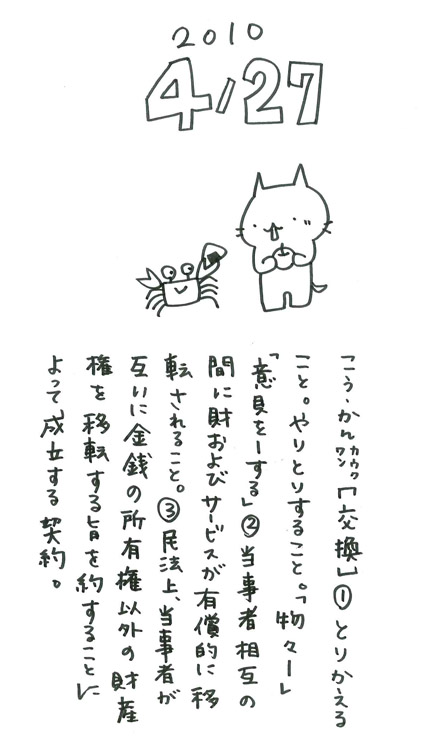 2010
4/27
こう‐かんカウクワン【交換】①とりかえる
こと。やりとりすること。「物々ー」
「意見をーする」②当事者相互の
間に財およびサービスが有償的に移
転されること。③民法上、当事者が
互いに金銭の所有権以外の財産
権を移転する旨を約することに
よって成立する契約。